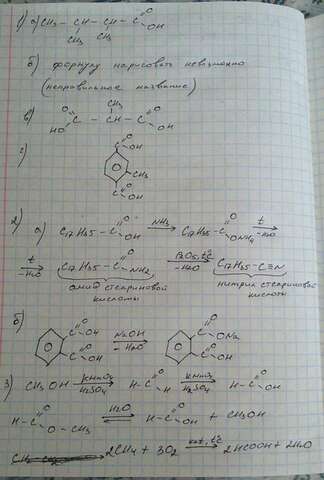 1) а) CH₃ - CH - CH - C(=O)OH
CH₃ CH₃
б) формулу нарисовать невозможно
(неправильное название)
в) HO-C(=O) - CH(CH₃) - C(=O)-OH
г) C(=O)OH
CH₃
C(=O)OH
2) а) C₁₇H₃₅ - C(=O)OH →(NH₃) C₁₇H₃₅ - C(=O)ONH₄ →(t, -H₂O)
→(t, -H₂O) C₁₇H₃₅ - C(=O)NH₂ →(P₂O₅, t°C, -H₂O) C₁₇H₃₅ - C≡N
амид стеариновой кислоты нитрил стеариновой кислоты
б) C(=O)OH C(=O)OH →(NaOH, -H₂O) C(=O)ONa C(=O)OH
3) CH₃OH →(KMnO₄, H₂SO₄) H-C(=O)H →(KMnO₄, H₂SO₄) H-C(=O)OH
H-C(=O)O-CH₃ ⇌(H₂O) H-C(=O)OH + CH₃OH
2CH₄ + 3O₂ →(кат., t°C) 2HCOOH + 2H₂O